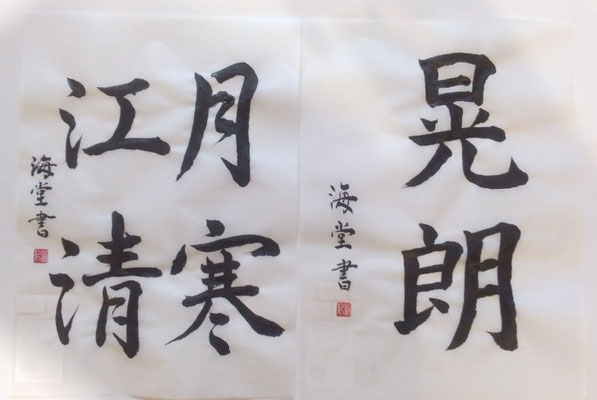 晃朗
海堂書
月寒
江清
海堂書